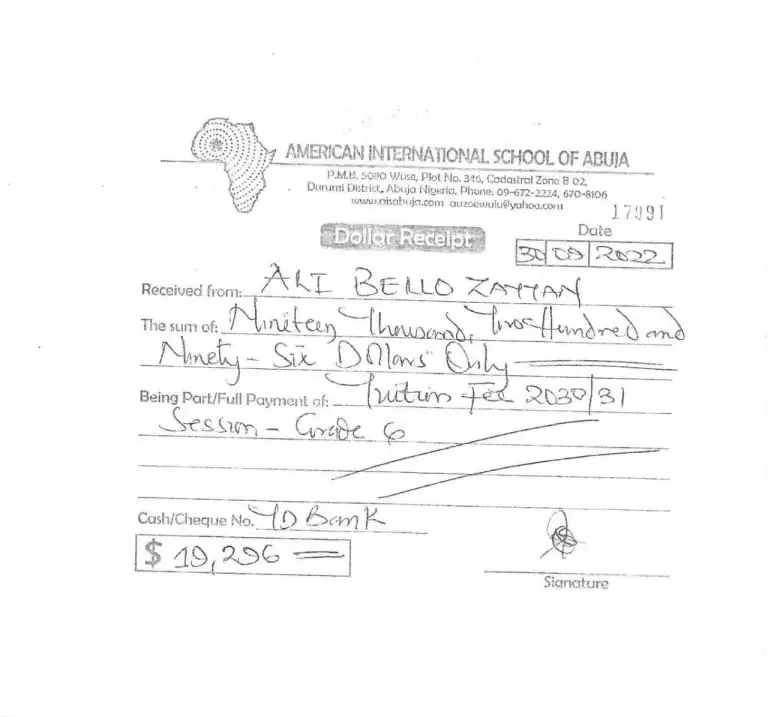 AMERICAN INTERNATIONAL SCHOOL OF ABUJA
P.M.B. 5090 Wuse, Plot No. 346, Cadastral Zone B 02,
Durumi District, Abuja Nigeria. Phone: 09-672-2224, 670-8106
www.aisabuja.com auzoewulu@yahoo.com
17991
Dollar Receipt
Date
30 09 2022
Received from: ALI BELLO ZAYYAN
The sum of: Nineteen Thousand, Two Hundred and
Ninety-Six Dollars Only
Being Part/Full Payment of: Tuition Fee 2030/31
Session - Grade 6
Cash/Cheque No. TD Bank
$ 19,296
Signature